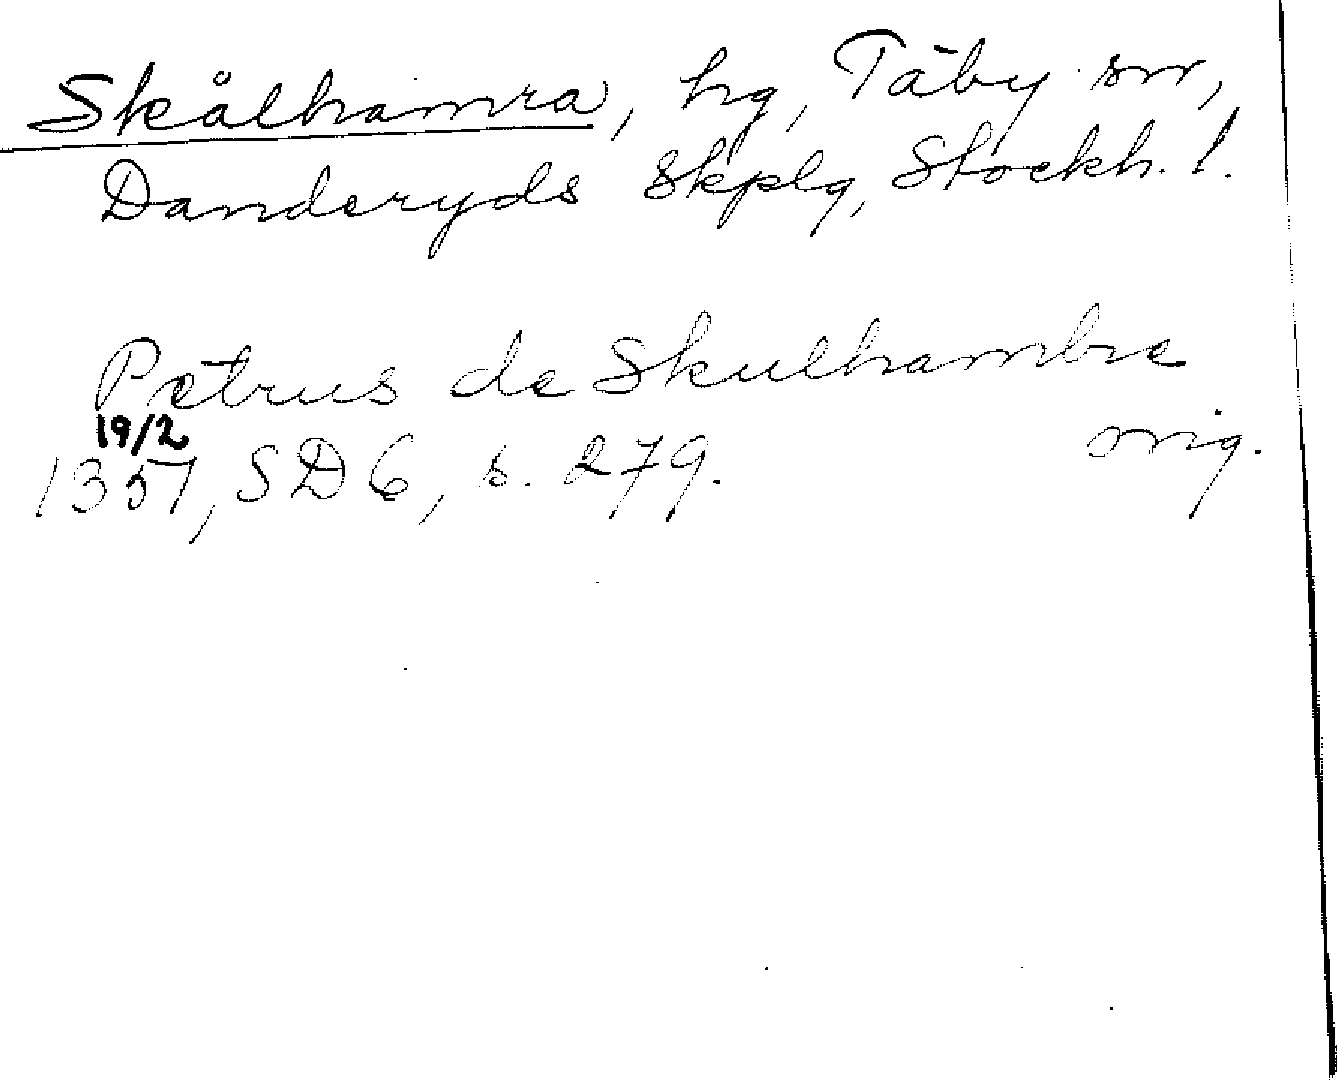 Skålhamra, hg, Täby sn,
Danderyds skplg, Stockh. l.
Petrus de Skulhambre
19/2
1351, SD 6, s. 279. orig.